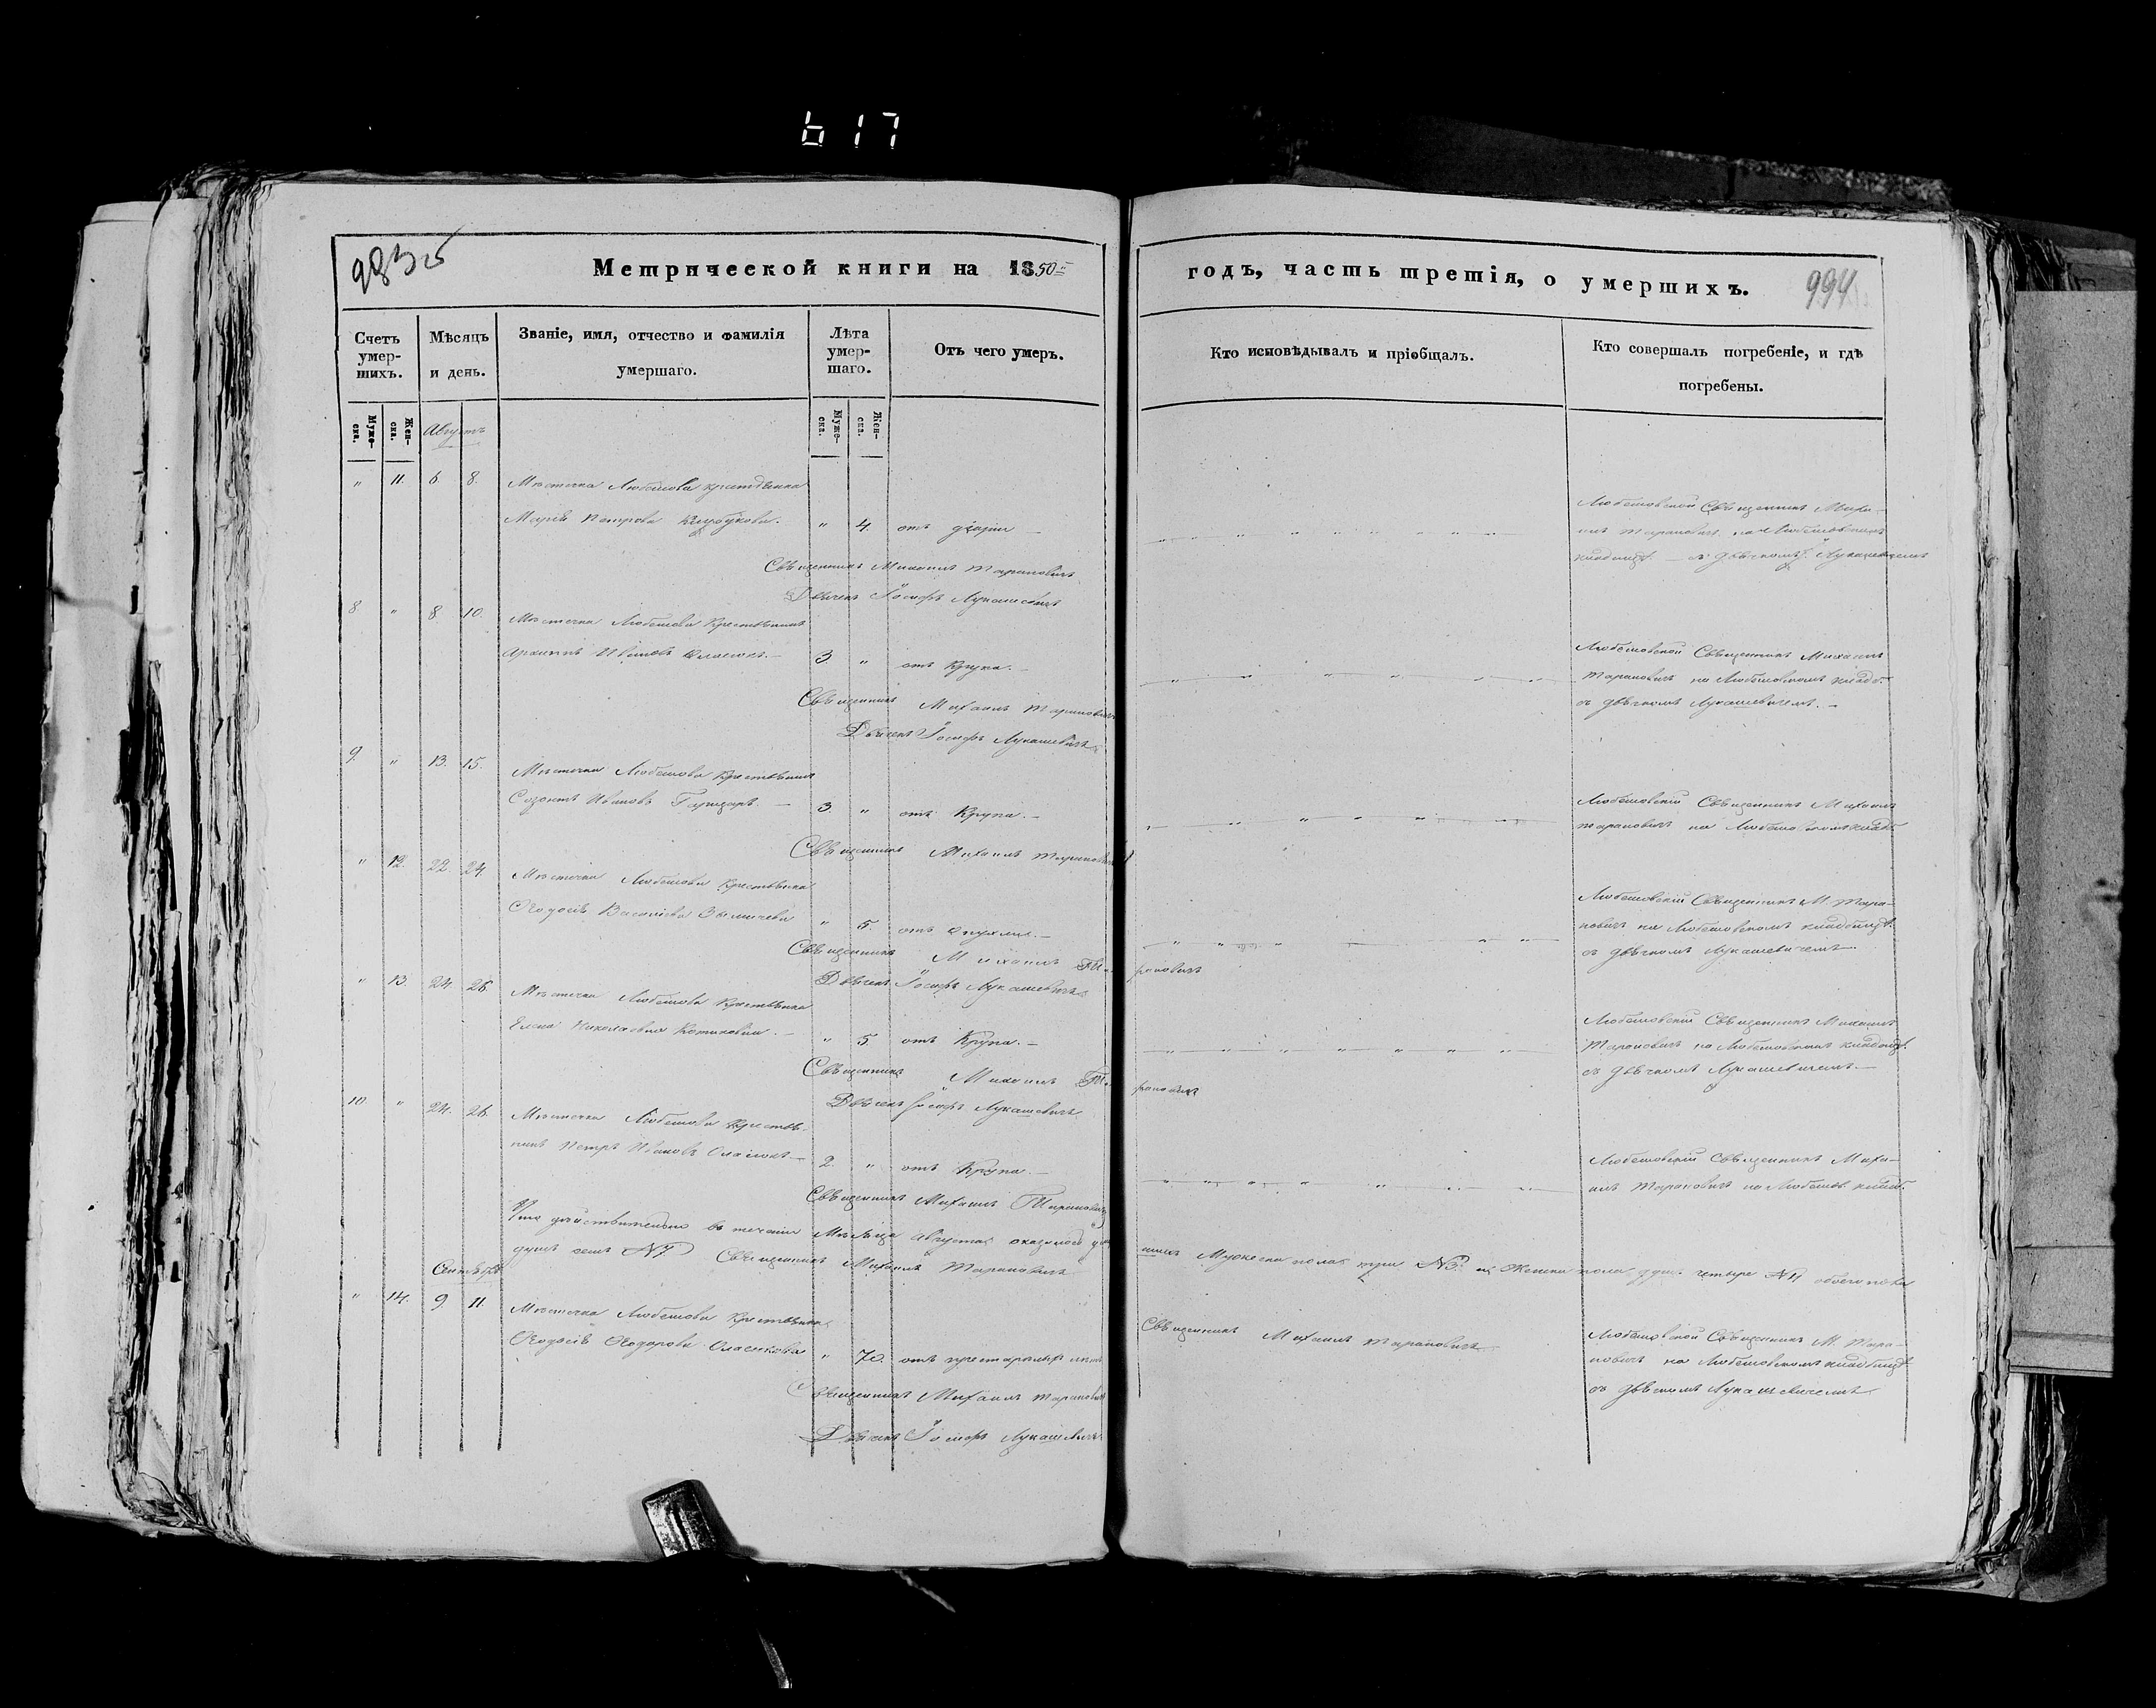 617
983 об
Метрической книги на 1850й
годъ, часть третія, о умершихъ.
994
Счетъ умер- шихъ.
Мѣсяцъ и день.
Званіе, имя, отчество и фамилія умершаго.
Лѣта умер- шаго.
Отъ чего умеръ.
Кто исповѣдывалъ и пріобщалъ.
Кто совершалъ погребеніе, и гдѣ погребены.
Муже- ска.
Жен- ска.
Августъ
Муже- ска.
Жен- ска.
" 11. 6 8. Мѣстечка Любешова крестьянка
Марія Петрова " 4. отъ
Любешовской Священникъ Миха-
илъ Тарановичъ на Любешовскомъ
кладбищѣ съ дьячкомъ І. Лукашевичемъ
Священникъ Михаилъ Тарановичъ
Дьячекъ Іосифъ Лукашевичъ
8 " 8. 10. Мѣстечка Любешова Крестьянинъ
Архипъ Ивановъ Оласюкъ. — 3. " отъ Крупа. —
Любешовской Священникъ Михаилъ
Тарановичъ на Любешовскомъ кладб.
съ дьячкомъ Лукашевичемъ. —
Священникъ Михаилъ Тарановичъ
Дьячекъ Іосифъ Лукашевичъ
9. " 13. 15. Мѣстечка Любешова Крестьянинъ
Созонтъ Ивановъ — 3. " отъ Крупа. —
Любешовскій Священникъ Михаилъ
Тарановичъ на Любешовскомъ кладб.
Священникъ Михаилъ Тарановичъ
" 12. 22. 24. Мѣстечка Любешова Крестьянка
Ѳеодосія Василіева " 5. отъ опухли. —
Любешовскій Священникъ М. Тара-
новичъ на Любешовскомъ кладбищѣ
съ дьячкомъ Лукашевичемъ —
Священникъ Михаилъ Тарановичъ
Дьячекъ Іосифъ Лукашевичъ
" 13. 24. 26. Мѣстечка Любешова Крестьянка
Елена Николаевна — " 5. отъ Крупа. —
Любешовскій Священникъ Михаилъ
Тарановичъ на Любешовскомъ кладбищѣ
съ дьячкомъ Лукашевичемъ —
Священникъ Михаилъ Тарановичъ
Дьячекъ Іосифъ Лукашевичъ
10. " 24. 26. Мѣстечка Любешова Крестья-
нинъ Петръ Ивановъ Оласюкъ — 2. " отъ Крупа. —
Любешовскій Священникъ Миха-
илъ Тарановичъ на Любешов. кладб.
Священникъ Михаилъ Тарановичъ
Что дѣйствительно въ теченіи Мѣсяца Августа оказалось умершихъ Мужеска пола три №3. и Женска пола душъ четыре №4 обоего пола
душъ семь №7 Священникъ Михаилъ Тарановичъ
Сентябрь
" 14. 9. 11. Мѣстечка Любешова Крестьянка
Ѳеодосія Ѳеодорова Оласюкова " 70. отъ престарѣлыхъ лѣтъ
Священникъ Михаилъ Тарановичъ
Любешовской Священникъ М. Тара-
новичъ на Любешовскомъ кладбищѣ
съ дьячкомъ Лукашевичемъ
Священникъ Михаилъ Тарановичъ
Дьячекъ Іосифъ Лукашевичъ